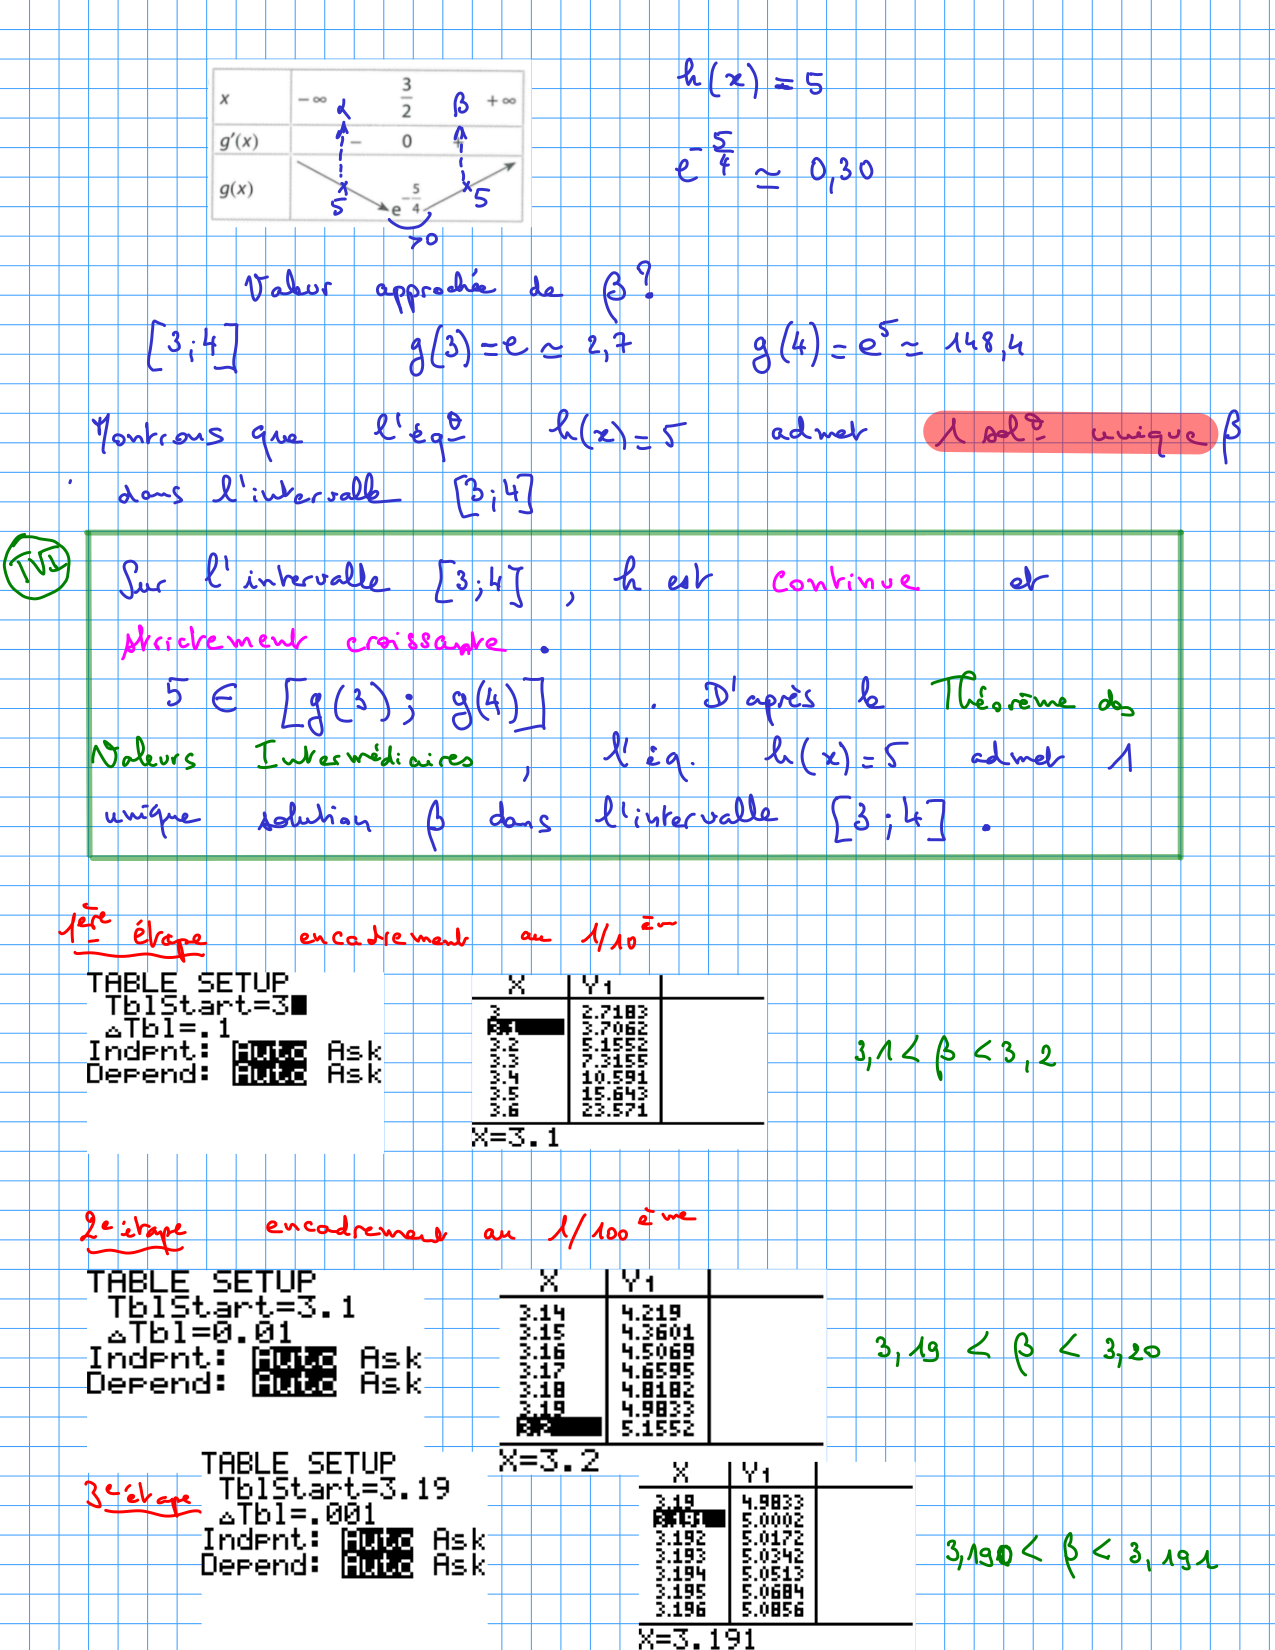 h(x) = 5
x -∞ α 3/2 β +∞
g'(x) - 0 +
e^{-5/4} ≃ 0,30
g(x) 5 e^{-5/4} 5
>0
Valeur approchée de β ?
[3;4] g(3) = e ≃ 2,7 g(4) = e^5 ≃ 148,4
Montrons que l'éq° h(x) = 5 admet 1 sol° unique β
dans l'intervalle [3;4]
TVI
Sur l'intervalle [3;4], h est continue et
strictement croissante.
5 ∈ [g(3); g(4)]. D'après le Théorème des
Valeurs Intermédiaires, l'éq. h(x) = 5 admet 1
unique solution β dans l'intervalle [3;4].
1ère étape encadrement au 1/10èm
TABLE SETUP
TblStart=3
△Tbl=.1
Indpnt: Auto Ask
Depend: Auto Ask
X Y1
3 2.7183
3.1 3.7062
3.2 5.1552
3.3 7.3155
3.4 10.591
3.5 15.643
3.6 23.571
X=3.1
3,1 < β < 3,2
2e étape encadrement au 1/100ème
TABLE SETUP
TblStart=3.1
△Tbl=0.01
Indpnt: Auto Ask
Depend: Auto Ask
X Y1
3.14 4.219
3.15 4.3601
3.16 4.5069
3.17 4.6595
3.18 4.8182
3.19 4.9833
3.2 5.1552
X=3.2
3,19 < β < 3,20
3e étape
TABLE SETUP
TblStart=3.19
△Tbl=.001
Indpnt: Auto Ask
Depend: Auto Ask
X Y1
3.19 4.9833
3.191 5.0002
3.192 5.0172
3.193 5.0342
3.194 5.0513
3.195 5.0684
3.196 5.0856
X=3.191
3,190 < β < 3,191